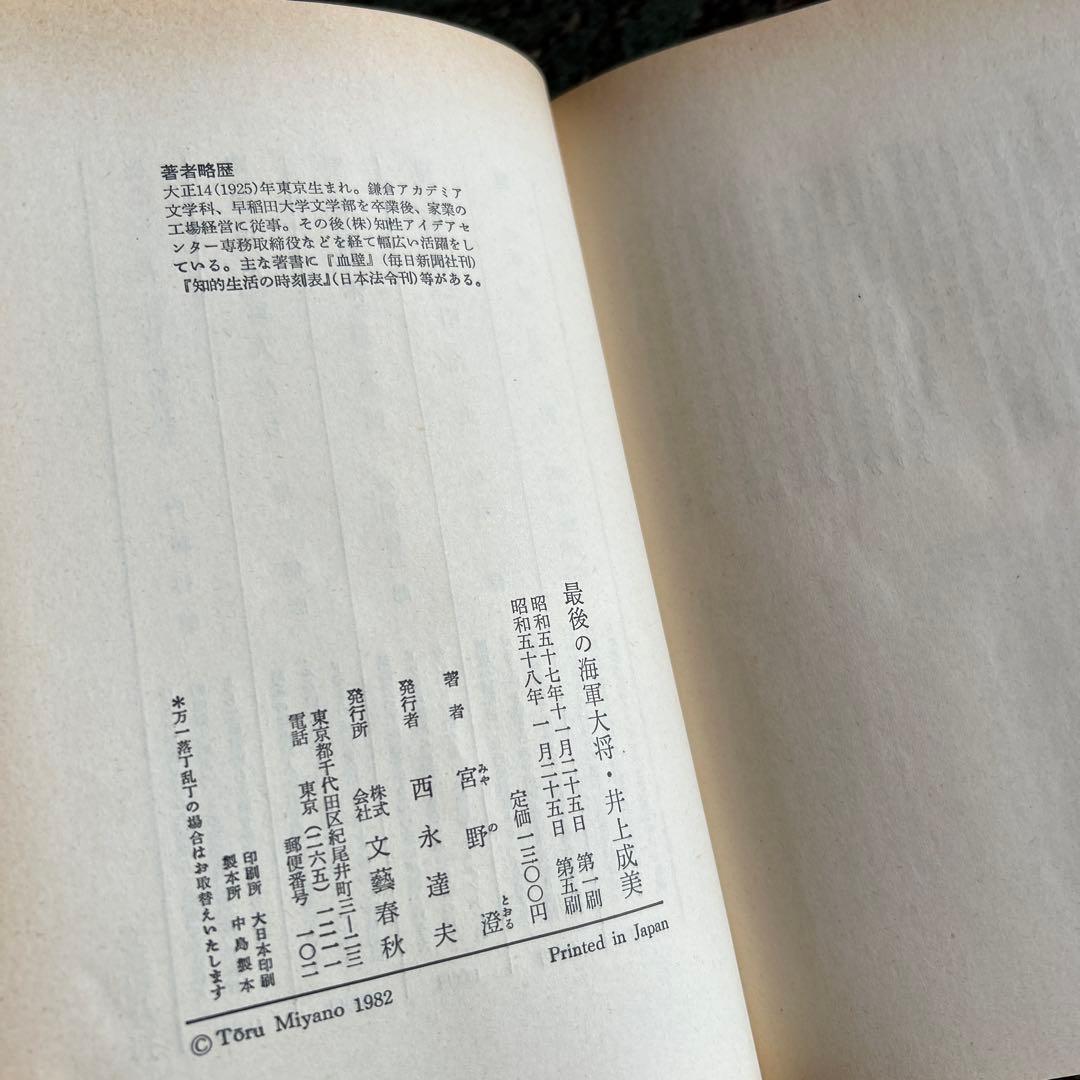 著者略歴
大正14(1925)年東京生まれ。鎌倉アカデミア
文学科、早稲田大学文学部を卒業後、家業の
工場経営に従事。その後(株)知性アイデアセ
ンター専務取締役などを経て幅広い活躍をし
ている。主な著書に『血壁』(毎日新聞社刊)
『知的生活の時刻表』(日本法令刊)等がある。
最後の海軍大将・井上成美
昭和五十七年十一月二十五日 第一刷
昭和五十八年 一月二十五日 第五刷
定価一三〇〇円
著者 宮野澄
みや の とおる
発行者 西永達夫
発行所 株式会社 文藝春秋
東京都千代田区紀尾井町三—二三
電話 東京(二六五)一二一一
郵便番号 一〇二
印刷所 大日本印刷
製本所 中島製本
＊万一落丁乱丁の場合はお取替えいたします
Printed in Japan
© Tōru Miyano 1982